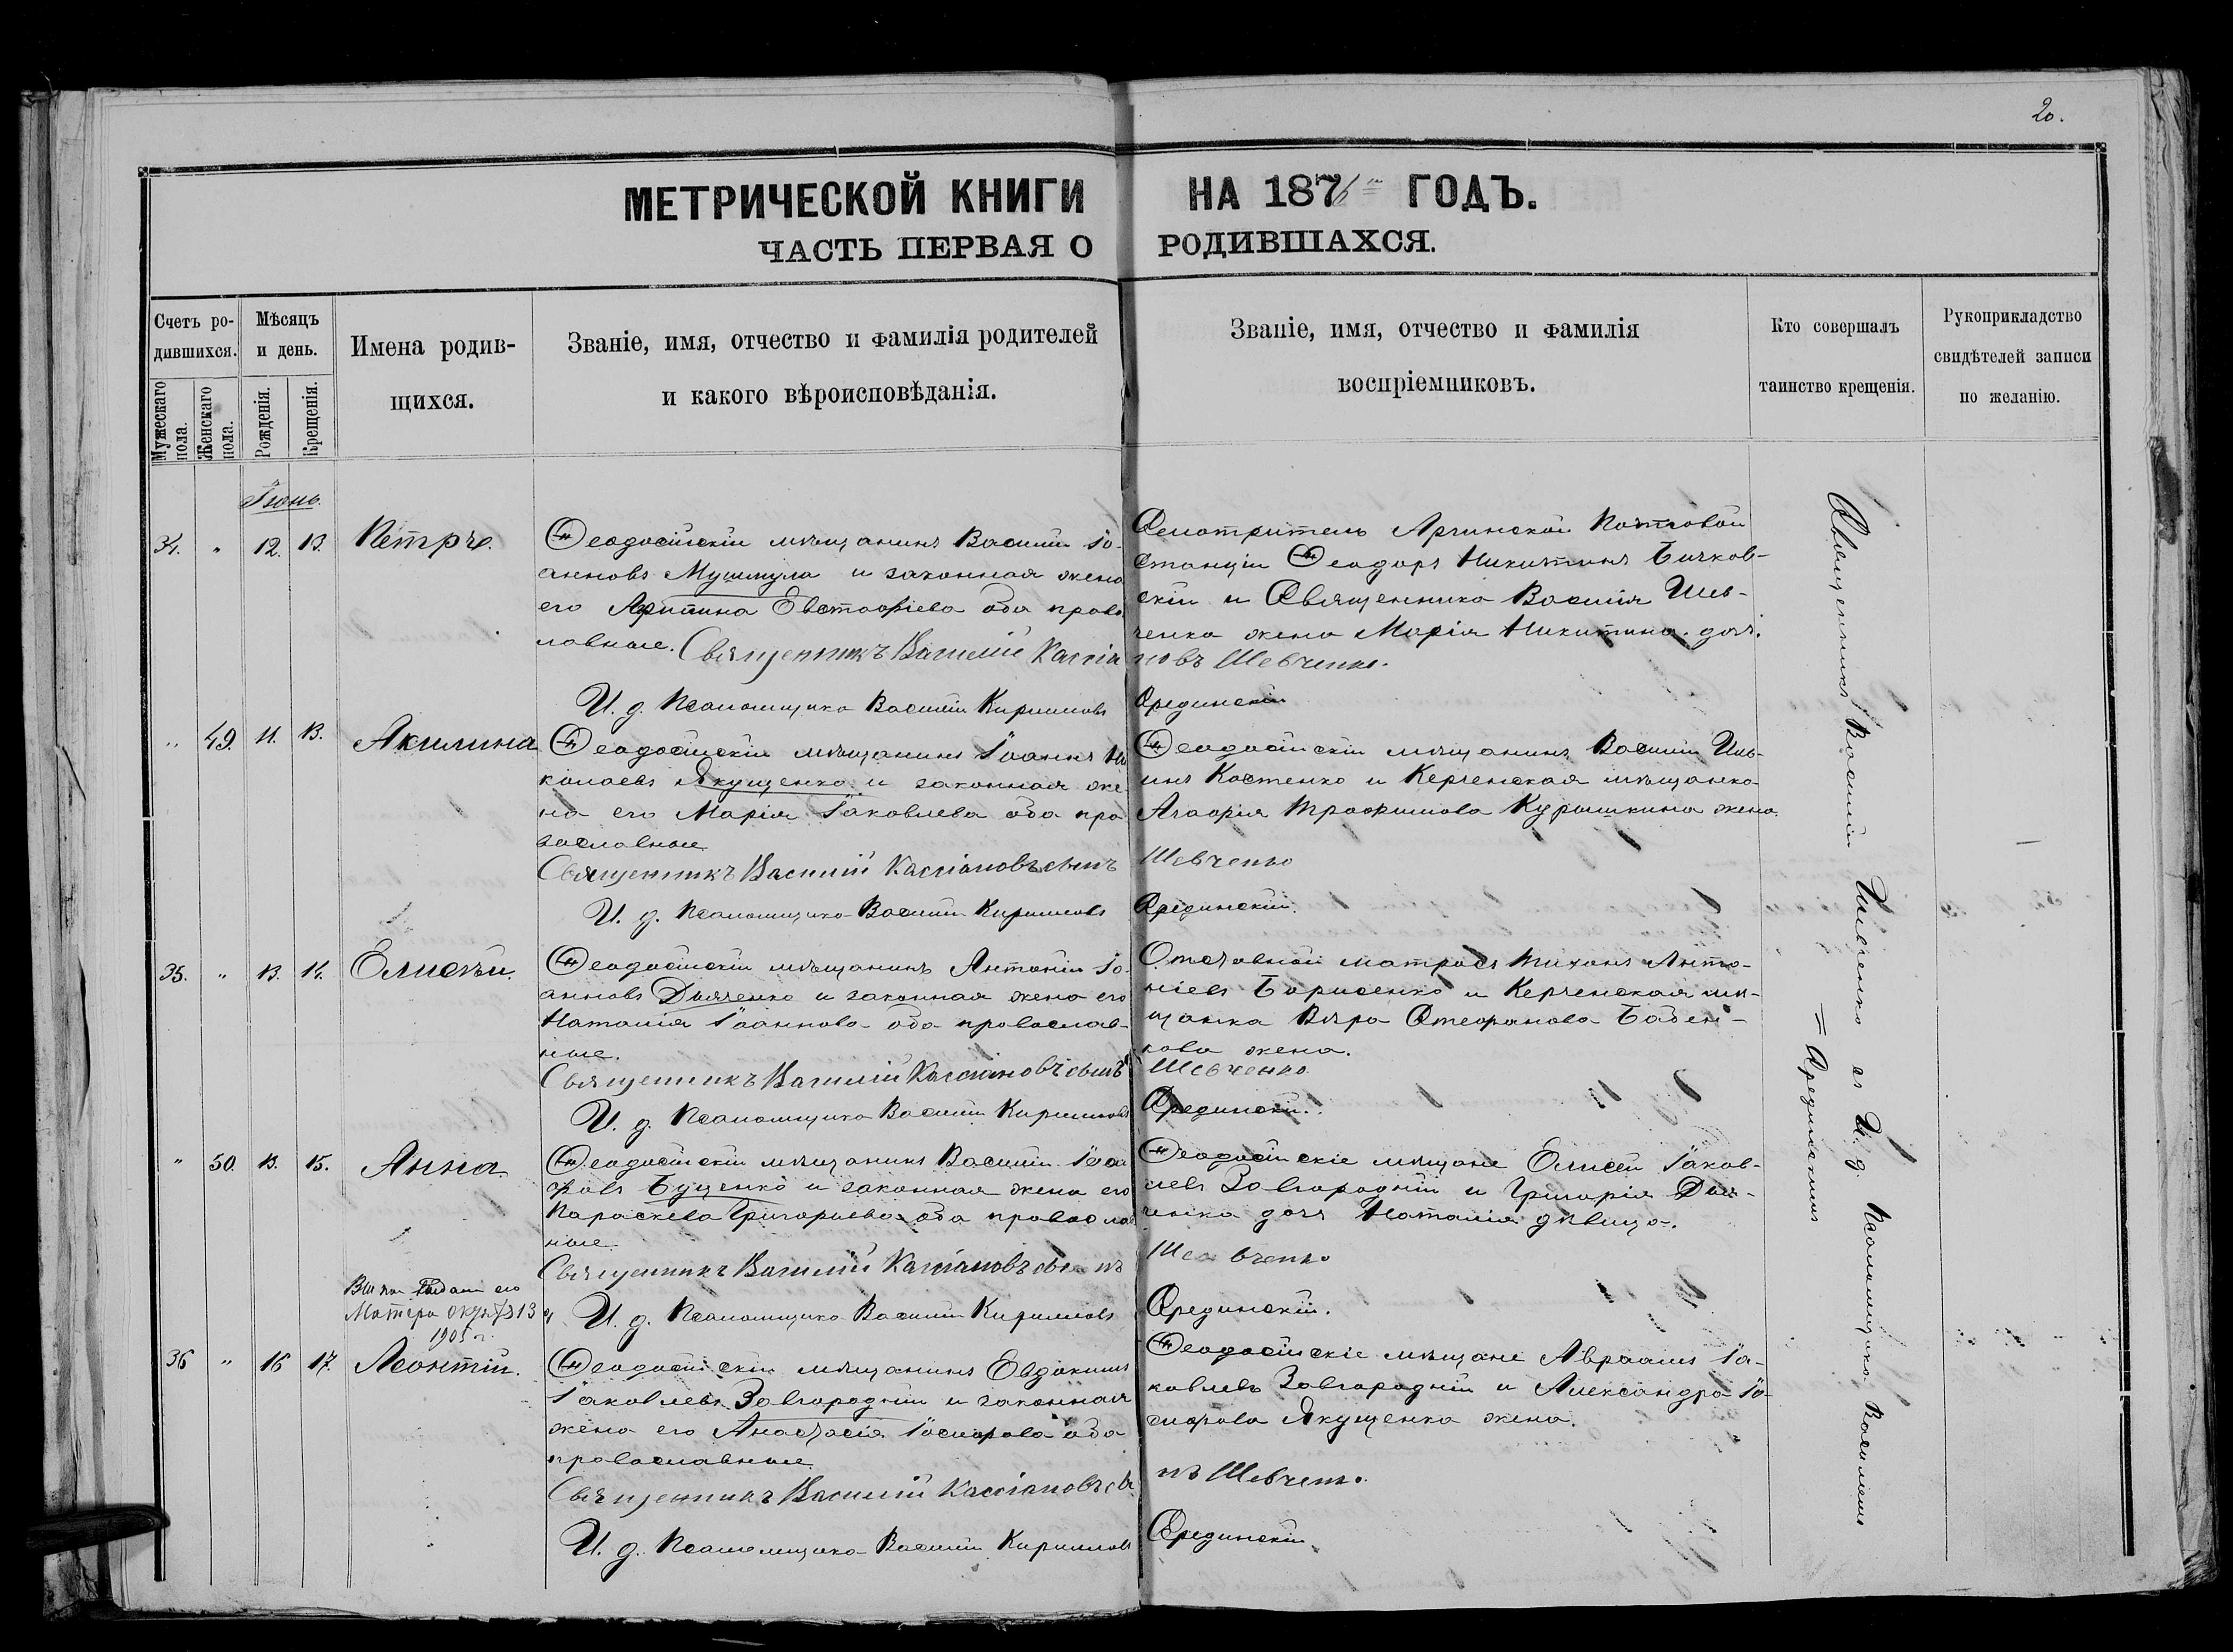 20.
МЕТРИЧЕСКОЙ КНИГИ НА 1876 ГОДЪ.
ЧАСТЬ ПЕРВАЯ О РОДИВШАХСЯ.
Счетъ ро-
дившихся.
Мужескаго
пола.
Женскаго
пола.
Мѣсяцъ
и день.
Рожденія.
Крещенія.
Имена родив-
щихся.
Званіе, имя, отчество и фамилія родителей
и какого вѣроисповѣданія.
Званіе, имя, отчество и фамилія
воспріемниковъ.
Кто совершалъ
таинство крещенія.
Рукоприкладство
свидѣтелей записи
по желанію.
Іюнь.
34. " 12. 13. Петръ.
Ѳеодосійскій мѣщанинъ Василій Іо-
анновъ Мушмула и законная жена
его Агрипина Евстафіева оба право
лавные.
Священникъ Василій Кассіа
И. д. Псаломщика Василій Кирилловъ
Смотритель Аргинской Почтовой
станціи Ѳеодоръ Никитинъ Бичков-
скій и Священника Василія Шев-
ченка жена Марія Никитина. доч.
новъ Шевченко.
Срединскій
" 49. 11. 13. Акилина
Ѳеодосійскій мѣщанинъ Іоаннъ Ни
колаевъ Якущенко и законная же
на его Марія Іаковлева оба пра
вославные
Священникъ Василій Кассіановъ сынъ
И. д. Псаломщика Василій Кирилловъ
Ѳеодосійскій мѣщанинъ Василій Иль-
инъ Костенко и Керченская мѣщанка
Агафія Трофимова Курашкина жена.
Шевченко
Срединскій.
35. " 13. 14. Елисѣй.
Ѳеодосійскій мѣщанинъ Антоній Іо-
анновъ Дьяченко и законная жена его
Наталія Іоаннова оба православ-
ные.
Священникъ Василій Кассіановъ сынъ
И. д. Псаломщика Василій Кирилловъ
Отставной матросъ Тихонъ Анто-
ніевъ Борисенко и Керченская мѣ-
щанка Вѣра Стефанова Бабен-
кова жена.
Шевченко
Срединскій.
" 50. 13. 15. Анна.
Ѳеодосійскій мѣщанинъ Василій
Буценко и законная жена его
Параскева Григорьева оба правосла
ные
Священникъ Василій Кассіановъ сынъ
И. д. Псаломщика Василій Кирилловъ
Ѳеодосійскіе мѣщане Елисей Іаков-
левъ Завгородній и Григорія Дья-
ченка дочь Наталія дѣвица.
Шевченко
Срединскій.
его
Матери 13
1905 г.
36 " 16 17. Леонтій.
Ѳеодосійскій мѣщанинъ Евдокимъ
Іаковлевъ Завгородній и законная
жена его Анастасія Іосифова оба
православные.
Священникъ Василій Кассіановъ сы
И. д. Псаломщика Василій Кирилловъ
Ѳеодосійскіе мѣщане Авраамъ Іа-
ковлевъ Завгородній и Александра Іо-
сифова Якущенка жена.
нъ Шевченко.
Срединскій.
Священникъ Василій Шевченко съ И. д. Псаломщика Василіемъ
= Срединскимъ